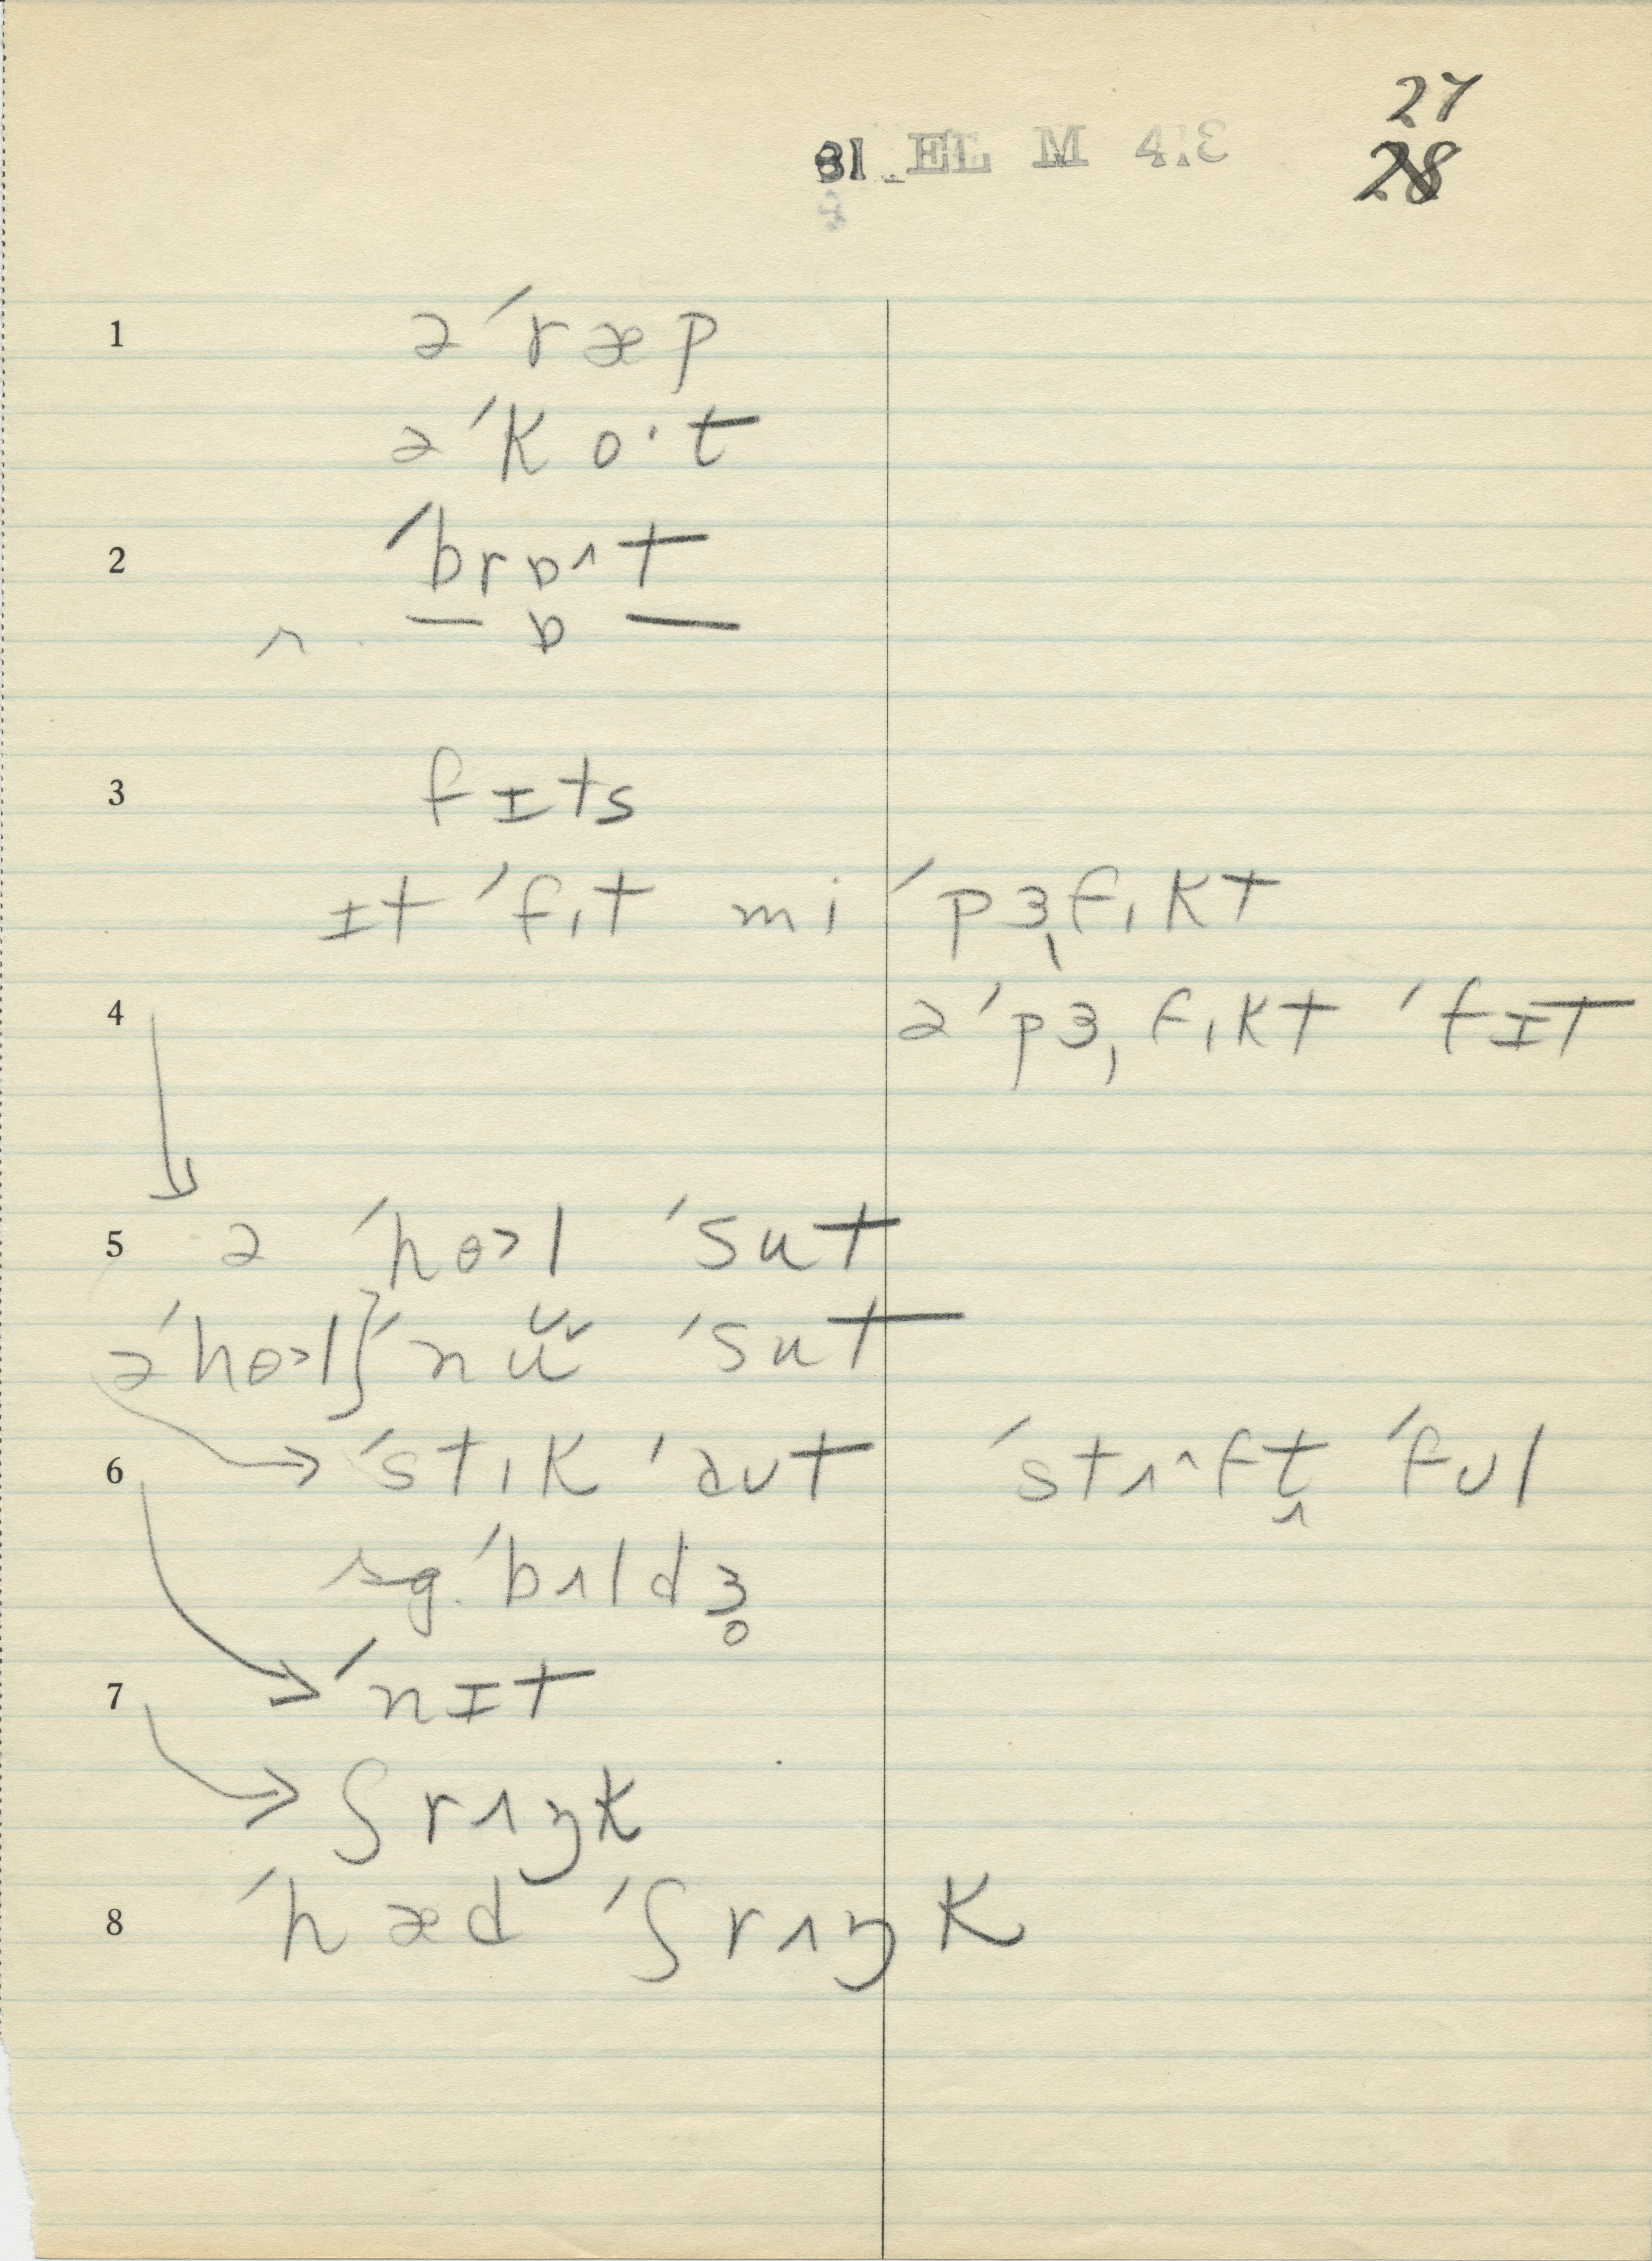 27
28
81 EL M 4.3
1 ə ˈræp
ə ˈko·t
2 ˈbrɒ^t
^ . — ɒ —
3 fɪts
ɪt ˈfɪt mi ˈpɜfɪkt
4 ə ˈpɜfɪkt ˈfɪt
5 ə ˈhɵ>l ˈsut
ə ˈhɵ>l } ˈnu ˈsut
6 ˈstɪk ˈaʊt ˈstʌ^ft ˈfʊl
sg. ˈbʌldɜ
ˈnɪt
7 ʃrʌŋk
8 ˈhæd ˈʃrʌŋk